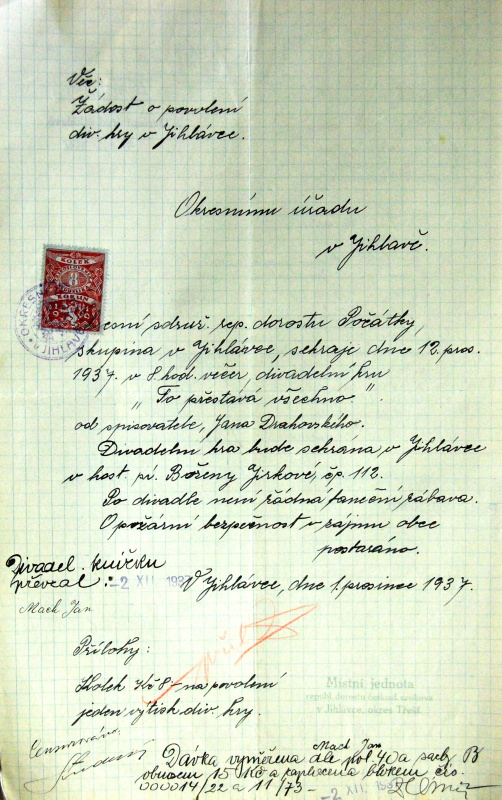 Věc:
Žádost o povolení
div. hry v Jihlávce.
Okresnímu úřadu
v Jihlavě.
KOLEK
8
KORUN
OKRESNÍ
JIHLAV
esní sdruž. rep. dorostu Počátky,
skupina v Jihlávce, sehraje dne 12. pros.
1937. v 8. hod. večer, divadelní hru
„To přestává všechno".
od spisovatele, Jana Drahovského.
Divadelní hra bude sehrána v Jihlávce
v host. pí. Boženy Jirkové, čp. 112.
Po divadle není řádná taneční zábava.
O požární bezpečnost v zájmu obce
postaráno.
Divadel. knížku
převzal:
-2 XII. 1937
V Jihlávce, dne 1. prosince 1937.
Mach Jan
Přílohy:
Kolek Kč 8·- na povolení
jeden výtisk div. hry.
Místní jednota
republ. dorostu českosl. venkova
v Jihlávce, okres Třešť.
Censurováno
Mach Jan
Dávka vyměřena dle pol. 40a sazb. B
obnosem 15 Kč a zaplacena blokem čís.
000014/22 a 11/73-
-2 XII. 1937